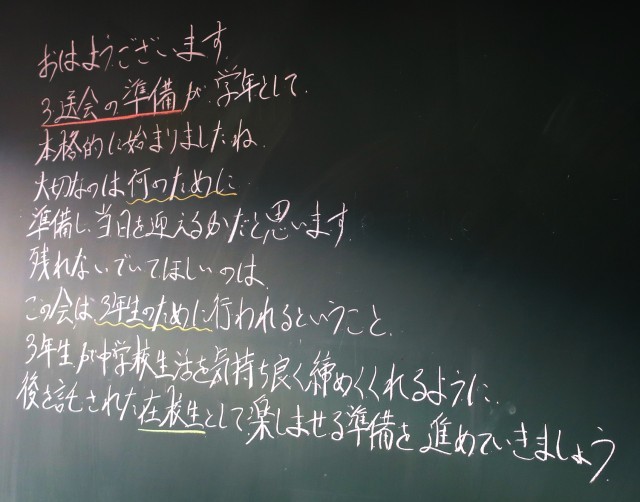 おはようございます。
3送会の準備が学年として
本格的に始まりましたね。
大切なのは何のために
準備し、当日を迎えるかだと思います。
残れないでいてほしいのは、
この会は3年生のために行われるということ。
3年生が中学校生活を気持ち良く締めくくれるように、
後を託された在校生として楽しませる準備を進めていきましょう。